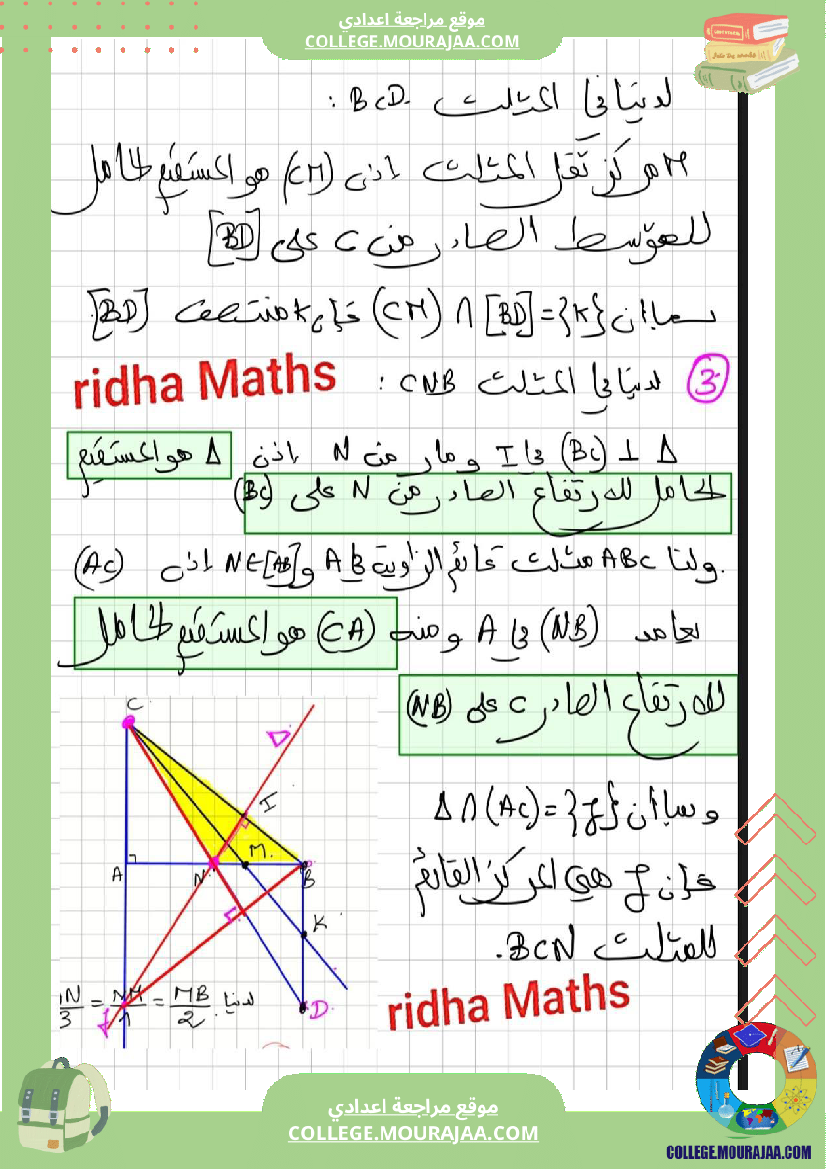 موقع مراجعة اعدادي
COLLEGE.MOURAJAA.COM
لدينا في المثلث BCD :
M مركز ثقل المثلث اذن (CM) هو المستقيم الحامل
للموسط الصادر من C على [BD]
بما ان {K}=[BD] ∩ (CM) فإن K منتصف [BD]
3 لدينا في المثلث CNB :
ridha Maths
Δ ⊥ (BC) في I و مار من N إذن Δ هو المستقيم
الحامل للارتفاع الصادر من N على (BC)
ولنا ABC مثلث قائم الزاوية في A و N∈[AB] اذن (AC)
يعامد (NB) في A ومنه (CA) هو المستقيم الحامل
للارتفاع الصادر C على (NB)
وبما أن Δ∩(AC)={J}
فإن J هي المركز القائم
للمثلث BCN.
ridha Maths
C
Δ
I
M
A
N
B
K
D
J
لدينا IN/3 = NM/1 = MB/2
موقع مراجعة اعدادي
COLLEGE.MOURAJAA.COM
COLLEGE.MOURAJAA.COM